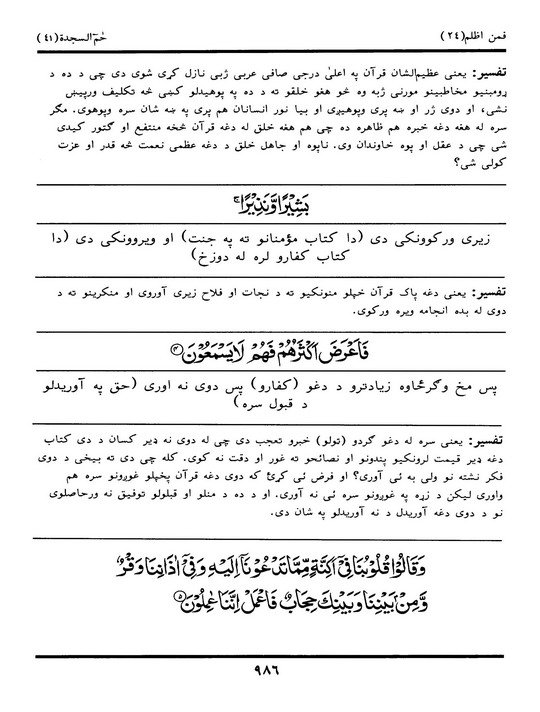 فمن اظلم(۲۴) حٰمٓ السجدة(۴۱)
تفسیر: یعنی عظیم الشان قرآن په اعلیٰ درجې صافی عربی ژبی نازل کړی شوی دی چی د ده د
ړومبنیو مخاطبینو مورنی ژبه وه څو هغو خلقو ته د ده په پوهیدلو کښی څه تکلیف ورپیښ
نشی، او دوی ژر او ښه پری وپوهیږی او بیا نور انسانان هم پری په ښه شان سره وپوهوی. مگر
سره له هغه دغه خبره هم ظاهره ده چی هم هغه خلق له دغه قرآن څخه منتفع او گټور کیدی
شی چی د عقل او پوه خاوندان وی. ناپوه او جاهل خلق د دغه عظمی نعمت څه قدر او عزت
کولی شی؟
بَشِيْرًا وَّنَذِيْرًا ۚ
زیری ورکوونکی دی (دا کتاب مؤمنانو ته په جنت) او ویروونکی دی (دا
کتاب کفارو لره له دوزخ)
تفسیر: یعنی دغه پاک قرآن خپلو منونکیو ته د نجات او فلاح زیری آوروی او منکرینو ته د
دوی له بده انجامه ویره ورکوی.
فَاَعْرَضَ اَكْثَرُهُمْ فَهُمْ لَا يَسْمَعُوْنَ ﴿۴﴾
پس مخ وگرځاوه زیادترو د دغو (کفارو) پس دوی نه اوری (حق په آوریدلو
د قبول سره)
تفسیر: یعنی سره له دغو گردو (تولو) خبرو تعجب دی چی له دوی نه ډیر کسان د دی کتاب
دغه ډیر قیمت لرونکیو پندونو او نصائحو ته غور او دقت نه کوی. کله چی دی ته بیخی د دوی
فکر نشته نو ولی به ئی آوری؟ او فرض ئی کړئ که دوی دغه قرآن پخپلو غوږونو سره هم
واوری لیکن د زړه په غوږونو سره ئی نه آوری. او د ده د منلو او قبلولو توفیق نه ورحاصلوی
نو د دوی دغه آوریدل د نه آوریدلو په شان دی.
وَقَالُوْا قُلُوْبُنَا فِیْٓ اَكِنَّةٍ مِّمَّا تَدْعُوْنَآ اِلَيْهِ وَفِیْٓ اٰذَانِنَا وَقْرٌ
وَّمِنْۢ بَيْنِنَا وَبَيْنِكَ حِجَابٌ فَاعْمَلْ اِنَّنَا عٰمِلُوْنَ ﴿۵﴾
۹۸۶